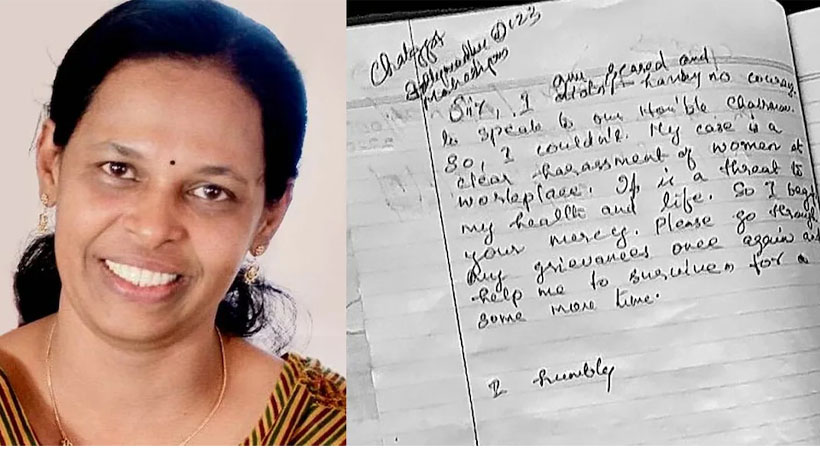 Sir, I am scared and
having no courage
to speak to our Hon'ble Chairman.
So, I couldn't. My case is a
clear harassment of women at
workplace. It is a threat to
my health and life. So I beg
your mercy. Please go through
my grievances once again and
help me to survive for a
some more time.
I humbly